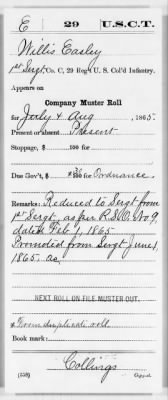 E 29 U.S.C.T.
Willis Easley
1st Sergt Co. C, 29 Reg't U. S. Col'd Infantry.
Appears on
Company Muster Roll
for July & Aug, 1865.
Present or absent Present
Stoppage, $ 100 for
Due Gov't, $ 100 for Ordnance
Remarks: Reduced to Sergt from
1st Sergt. as per R.S.O. No 9.
dated Feb 1, 1865
Promoted from Sergt June 1
1865. as
NEXT ROLL ON FILE MUSTER OUT.
* From duplicate roll
Book mark:
Collings
(358) Copyist.